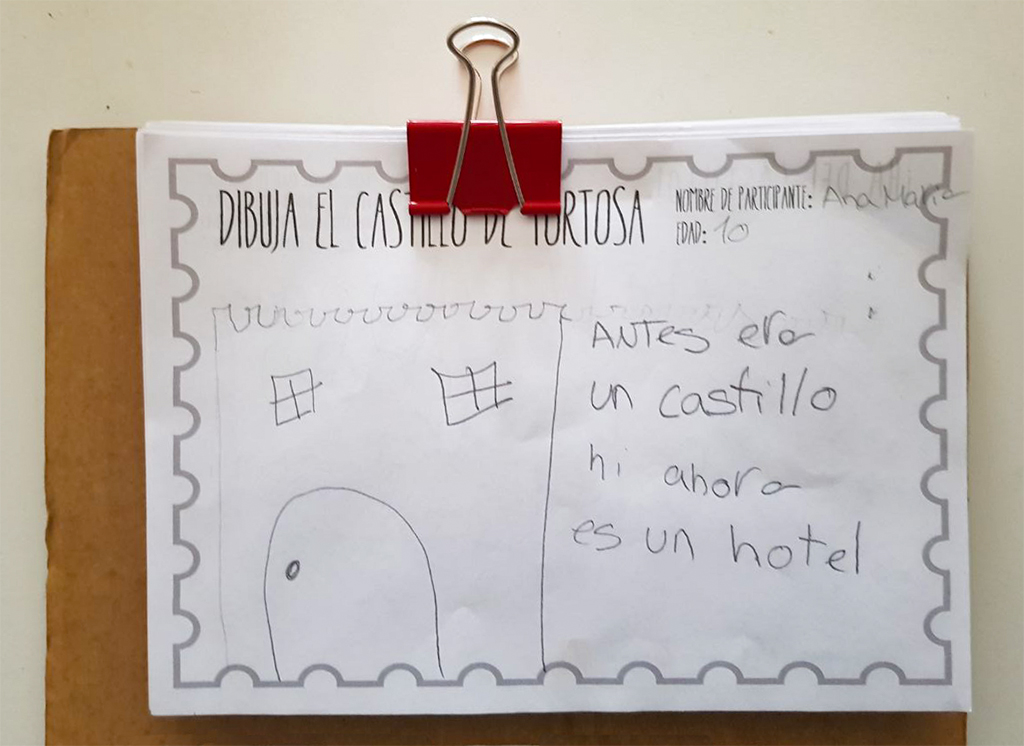 DIBUJA EL CASTILLO DE TORTOSA
NOMBRE DE PARTICIPANTE: Ana Maria
EDAD: 10
ANTES era
un castillo
hi ahora
es un hotel